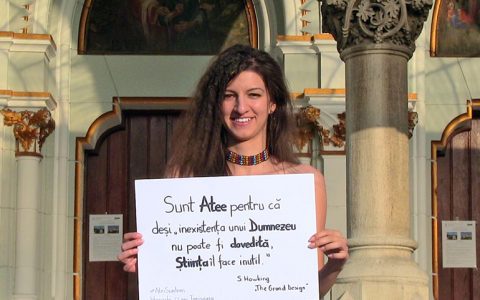 Sunt Atee pentru că
deși „inexistența unui Dumnezeu
nu poate fi dovedită,
Știința îl face inutil."
S. Hawking
„The Grand Design"